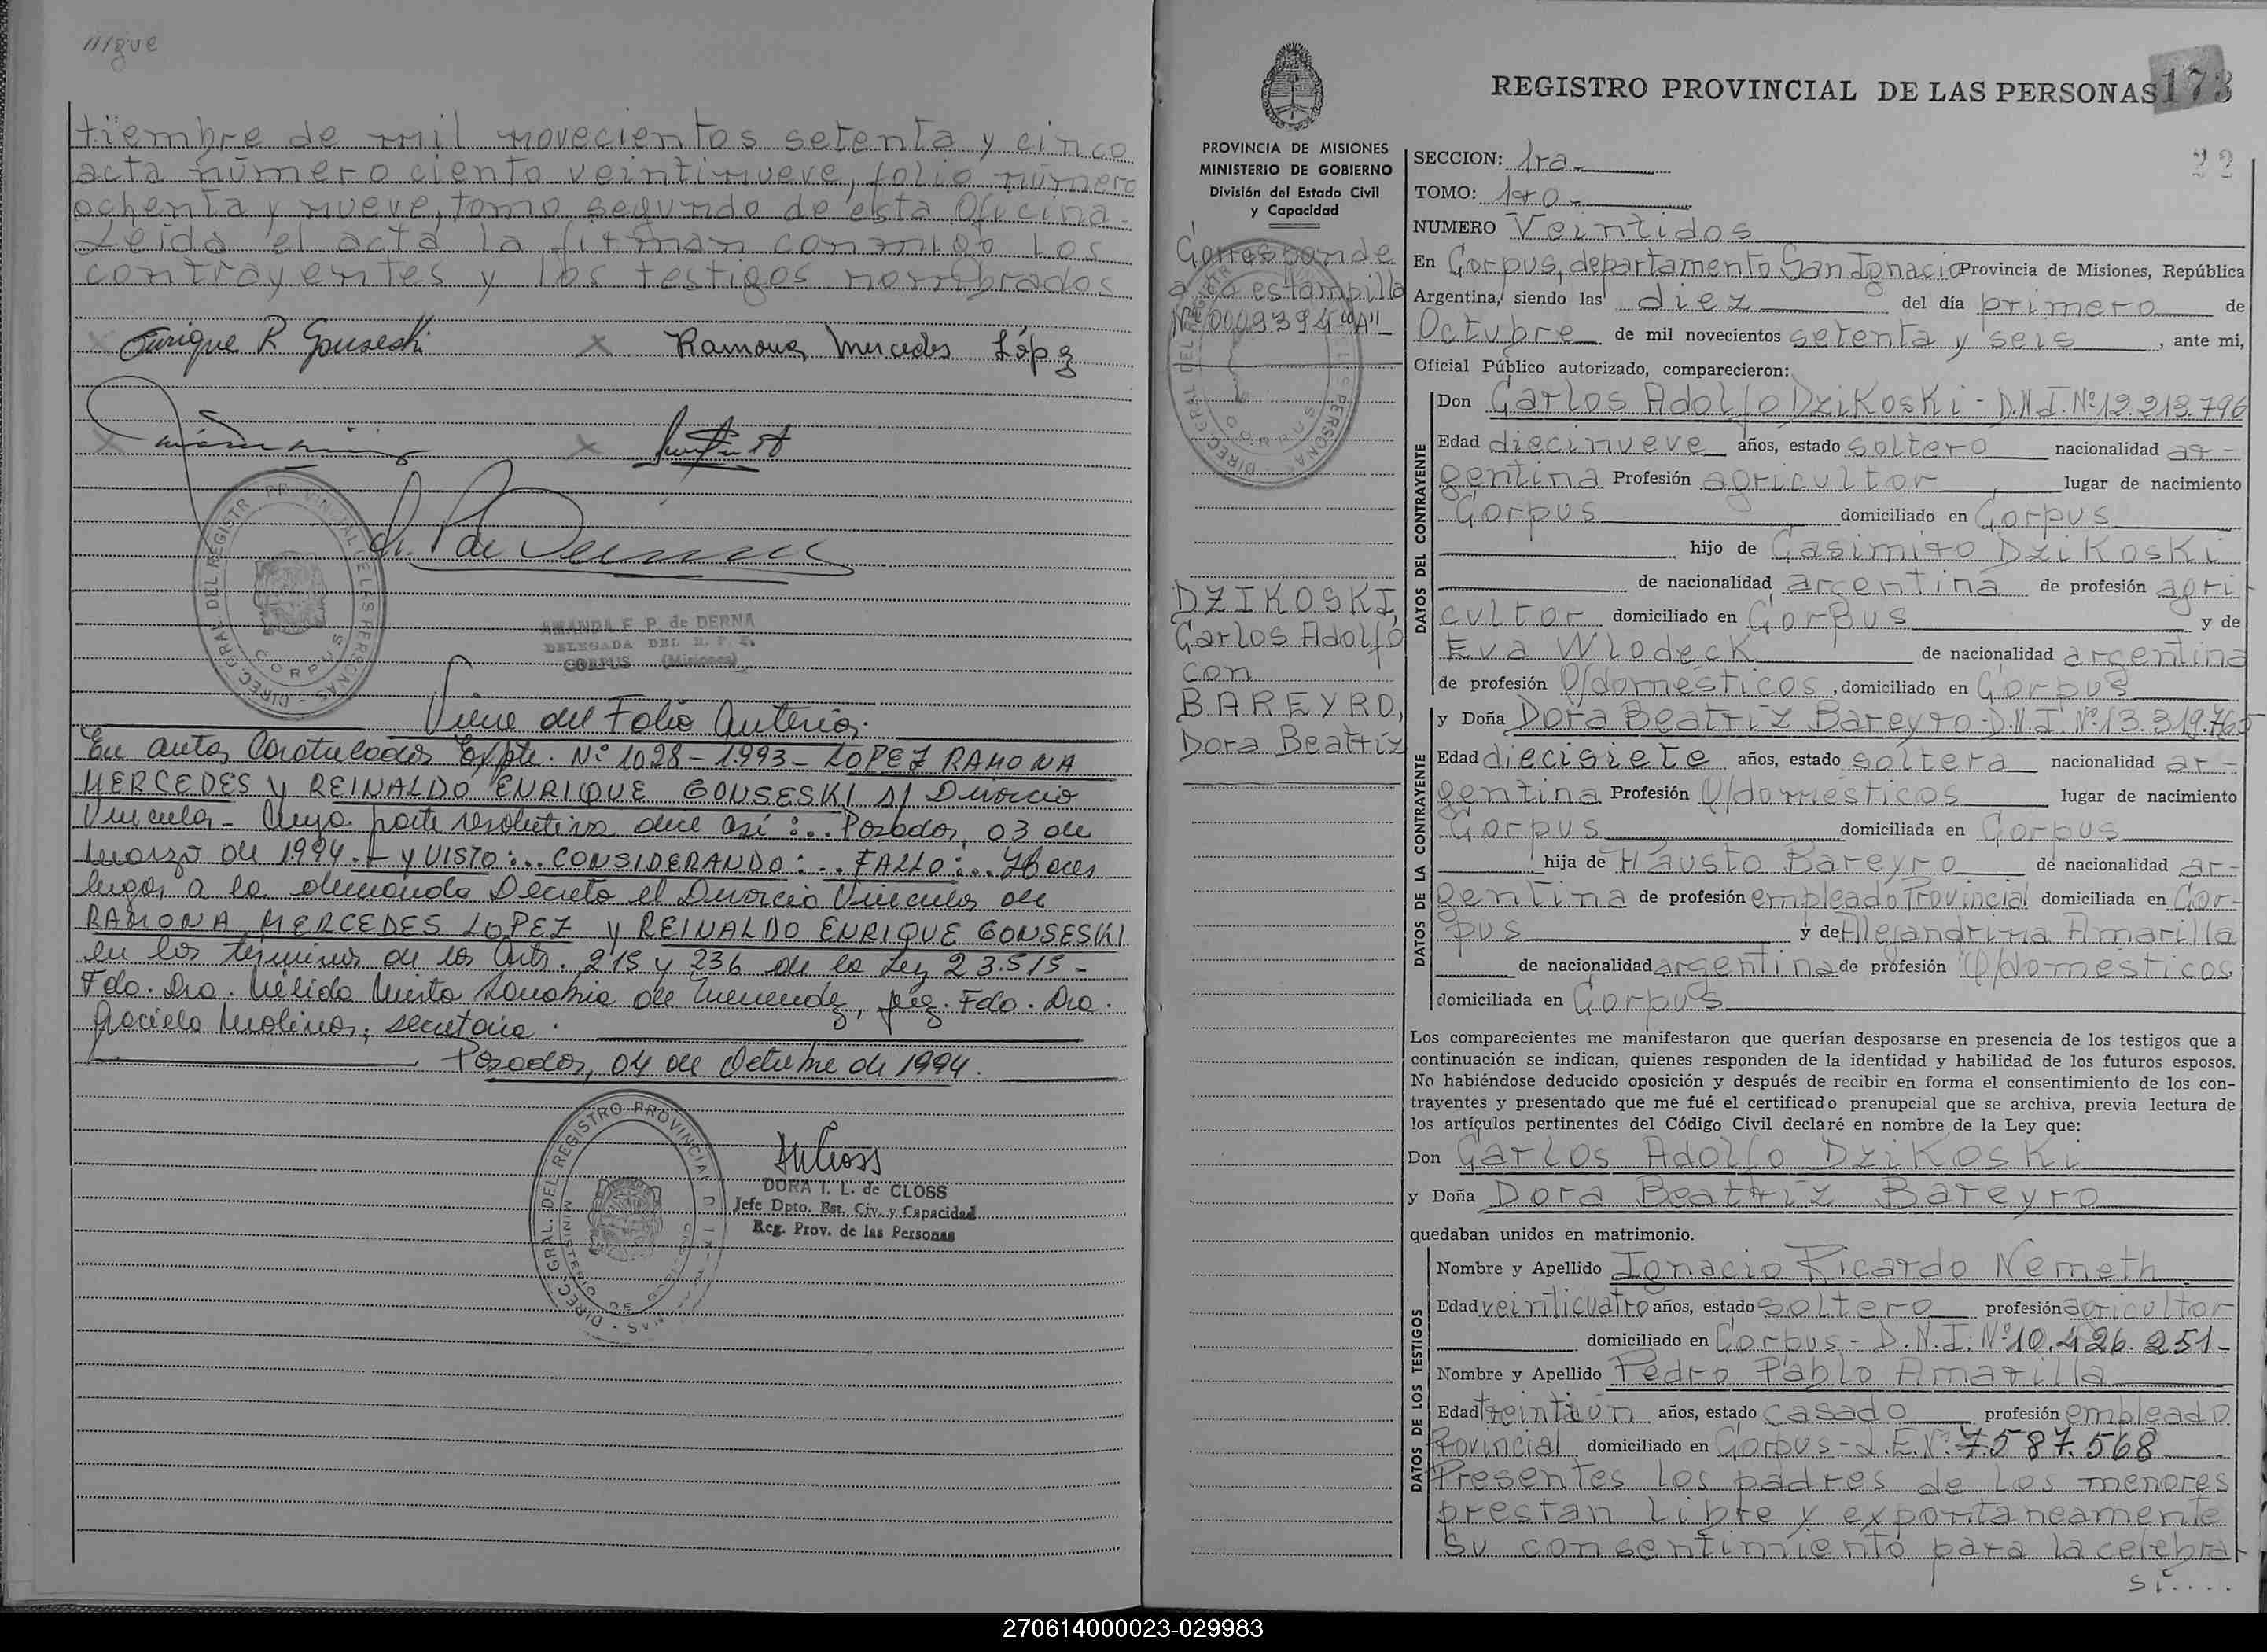 ///gue
tiembre de mil novecientos setenta y cinco
acta número ciento veintinueve, folio número
ochenta y nueve, tomo segundo de esta Oficina.
Leida el acta la firman conmigo los
contrayentes y los testigos nombrados
Enrique R Gonseski Ramona Mercedes López
AMANDA E. P. de DERNA
DELEGADA DEL R. P. P.
CORPUS (Misiones)
Viene del Folio Anterior.
En autos Caratulados Expte. Nº 1028-1993- LOPEZ RAMONA
MERCEDES y REINALDO ENRIQUE GONSESKI s/ Divorcio
Vincular- Cuya parte resolutiva dice así:... Posadas, 03 de
Marzo de 1994.- y VISTO:... CONSIDERANDO:... FALLO:... Hacer
lugar a la demanda Decreto el Divorcio Vincular de
RAMONA MERCEDES LOPEZ y REINALDO ENRIQUE GONSESKI
en los términos de los Arts. 215 y 236 de la Ley 23.515-
Fdo. Dra. Mirta de juez. Fdo. Dra.
Graciela Molinas, secretaria.
Posadas, 04 de Octubre de 1994.
DORA I. L. de CLOSS
Jefe Dpto. Est. Civ. y Capacidad
Reg. Prov. de las Personas
REGISTRO PROVINCIAL DE LAS PERSONAS 173
22
PROVINCIA DE MISIONES
MINISTERIO DE GOBIERNO
División del Estado Civil
y Capacidad
Corresponde
a estampilla
Nº 0009394 "A"
DZIKOSKI,
Carlos Adolfo
con
BAREYRO,
Dora Beatriz
SECCION: 1ra-
TOMO: 1ro-
NUMERO Veintidos
En Corpus, departamento San Ignacio Provincia de Misiones, República
Argentina, siendo las diez del día primero de
Octubre de mil novecientos setenta y seis, ante mi,
Oficial Público autorizado, comparecieron:
DATOS DEL CONTRAYENTE
Don Carlos Adolfo Dzikoski - D.N.I. Nº 12.213.796
Edad diecinueve años, estado soltero nacionalidad ar-
gentina Profesión agricultor lugar de nacimiento
Corpus domiciliado en Corpus
hijo de Casimiro Dzikoski
de nacionalidad argentina de profesión agri
cultor domiciliado en Corpus y de
Eva Wlodeck de nacionalidad argentina
de profesión Q/domésticos, domiciliado en Corpus
DATOS DE LA CONTRAYENTE
y Doña Dora Beatriz Bareyro-D.N.I. Nº 13.319.765
Edad diecisiete años, estado soltera nacionalidad ar-
gentina Profesión Q/domésticos lugar de nacimiento
Corpus domiciliada en Corpus
hija de Hausto Bareyro de nacionalidad ar-
gentina de profesión empleado Provincial domiciliada en Cor-
pus y de Alejandrina Amarilla
de nacionalidad argentina de profesión Q/domésticos
domiciliada en Corpus
Los comparecientes me manifestaron que querían desposarse en presencia de los testigos que a
continuación se indican, quienes responden de la identidad y habilidad de los futuros esposos.
No habiéndose deducido oposición y después de recibir en forma el consentimiento de los con-
trayentes y presentado que me fué el certificado prenupcial que se archiva, previa lectura de
los artículos pertinentes del Código Civil declaré en nombre de la Ley que:
Don Carlos Adolfo Dzikoski
y Doña Dora Beatriz Bareyro
quedaban unidos en matrimonio.
DATOS DE LOS TESTIGOS
Nombre y Apellido Ignacio Ricardo Nemeth
Edad veinticuatro años, estado soltero profesión agricultor
domiciliado en Corpus - D.N.I. Nº 10.426.251-
Nombre y Apellido Pedro Pablo Amarilla
Edad treintiún años, estado casado profesión empleado
Provincial domiciliado en Corpus-L.E.Nº 7.587.568
Presentes los padres de los menores
prestan libre y expontaneamente
su consentimiento para la celebra-
si....
270614000023-029983